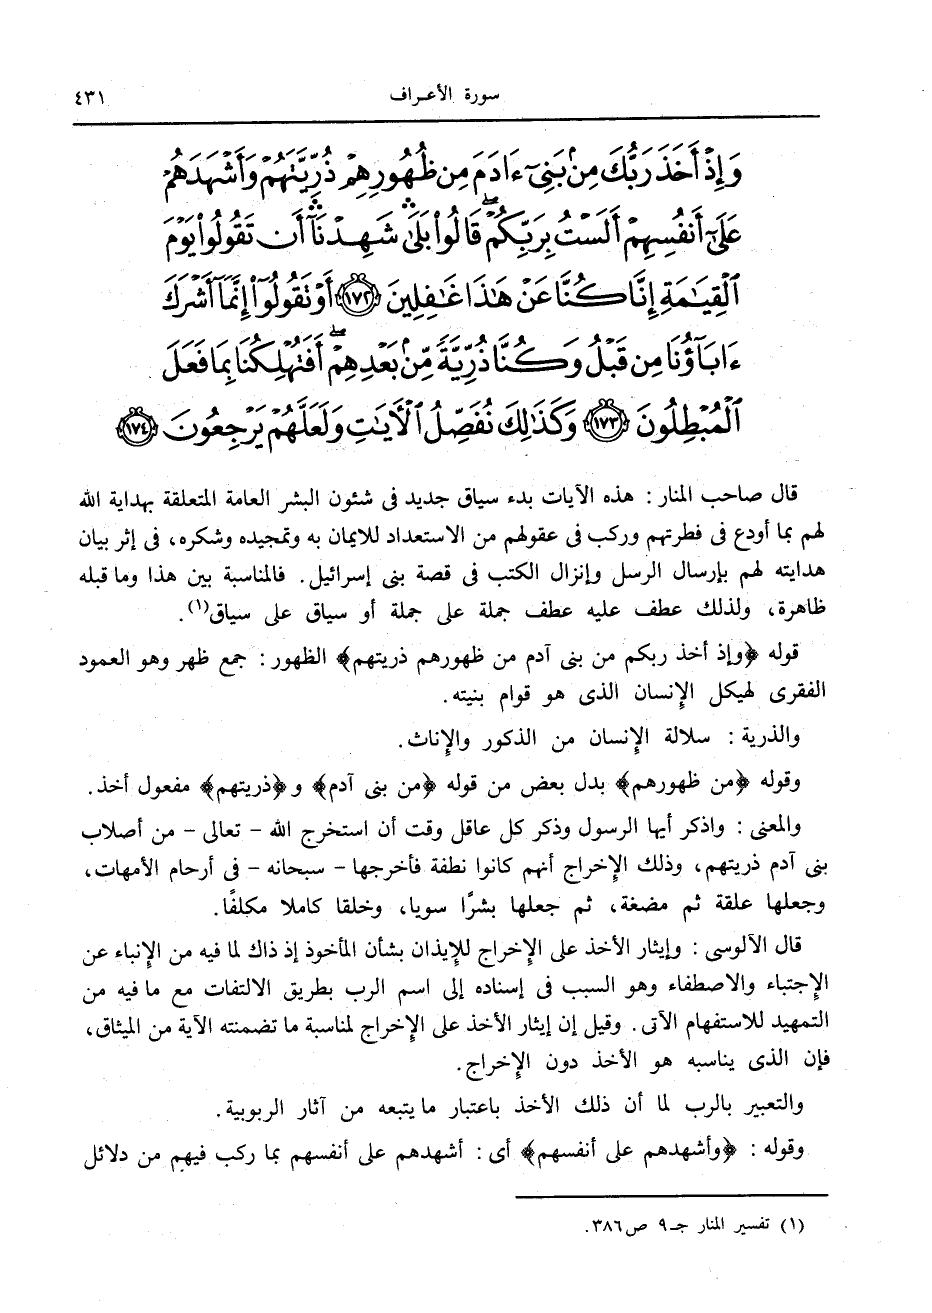 سورة الأعراف ٤٣١
وَإِذْ أَخَذَ رَبُّكَ مِنۢ بَنِىٓ ءَادَمَ مِن ظُهُورِهِمْ ذُرِّيَّتَهُمْ وَأَشْهَدَهُمْ
عَلَىٰٓ أَنفُسِهِمْ أَلَسْتُ بِرَبِّكُمْ ۖ قَالُوا۟ بَلَىٰ ۛ شَهِدْنَآ ۛ أَن تَقُولُوا۟ يَوْمَ
ٱلْقِيَـٰمَةِ إِنَّا كُنَّا عَنْ هَـٰذَا غَـٰفِلِينَ ﴿١٧٢﴾ أَوْ تَقُولُوٓا۟ إِنَّمَآ أَشْرَكَ
ءَابَآؤُنَا مِن قَبْلُ وَكُنَّا ذُرِّيَّةً مِّنۢ بَعْدِهِمْ ۖ أَفَتُهْلِكُنَا بِمَا فَعَلَ
ٱلْمُبْطِلُونَ ﴿١٧٣﴾ وَكَذَٰلِكَ نُفَصِّلُ ٱلْـَٔايَـٰتِ وَلَعَلَّهُمْ يَرْجِعُونَ ﴿١٧٤﴾
قال صاحب المنار : هذه الآيات بدء سياق جديد فى شئون البشر العامة المتعلقة بهداية الله
لهم بما أودع فى فطرتهم وركب فى عقولهم من الاستعداد للايمان به وتمجيده وشكره، فى إثر بيان
هدايته لهم بإرسال الرسل وإنزال الكتب فى قصة بنى إسرائيل. فالمناسبة بين هذا وما قبله
ظاهرة، ولذلك عطف عليه عطف جملة على جملة أو سياق على سياق(١).
قوله ﴿وإذ أخذ ربكم من بنى آدم من ظهورهم ذريتهم﴾ الظهور: جمع ظهر وهو العمود
الفقرى لهيكل الإنسان الذى هو قوام بنيته.
والذرية : سلالة الإنسان من الذكور والإناث.
وقوله ﴿من ظهورهم﴾ بدل بعض من قوله ﴿من بنى آدم﴾ و﴿ذريتهم﴾ مفعول أخذ.
والمعنى : واذكر أيها الرسول وذكر كل عاقل وقت أن استخرج الله - تعالى - من أصلاب
بنى آدم ذريتهم، وذلك الإخراج أنهم كانوا نطفة فأخرجها - سبحانه - فى أرحام الأمهات،
وجعلها علقة ثم مضغة، ثم جعلها بشرًا سويا، وخلقا كاملا مكلفًا.
قال الآلوسى : وإيثار الأخذ على الإخراج للإيذان بشأن المأخوذ إذ ذاك لما فيه من الإنباء عن
الإجتباء والاصطفاء وهو السبب فى إسناده إلى اسم الرب بطريق الالتفات مع ما فيه من
التمهيد للاستفهام الآتى. وقيل إن إيثار الأخذ على الإخراج لمناسبة ما تضمنته الآية من الميثاق،
فإن الذى يناسبه هو الأخذ دون الإخراج.
والتعبير بالرب لما أن ذلك الأخذ باعتبار ما يتبعه من آثار الربوبية.
وقوله : ﴿وأشهدهم على أنفسهم﴾ أى: أشهدهم على أنفسهم بما ركب فيهم من دلائل
(١) تفسير المنار جـ٩ ص٣٨٦.